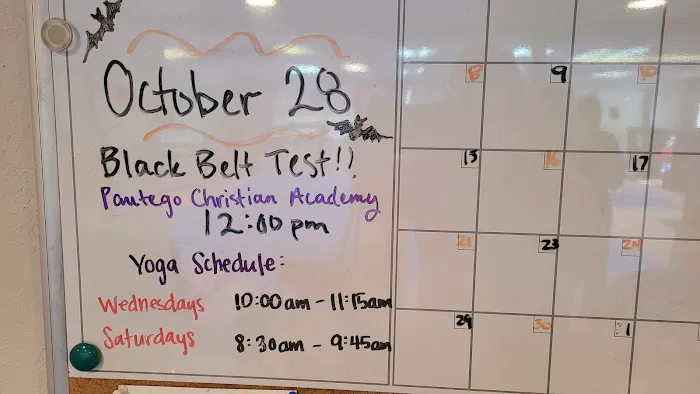 October 28
Black Belt Test!!
Pantego Christian Academy
12:00 pm
Yoga Schedule:
Wednesdays 10:00am - 11:15am
Saturdays 8:30am - 9:45am
8 9 10
15 16 17
21 23 24
29 30 31